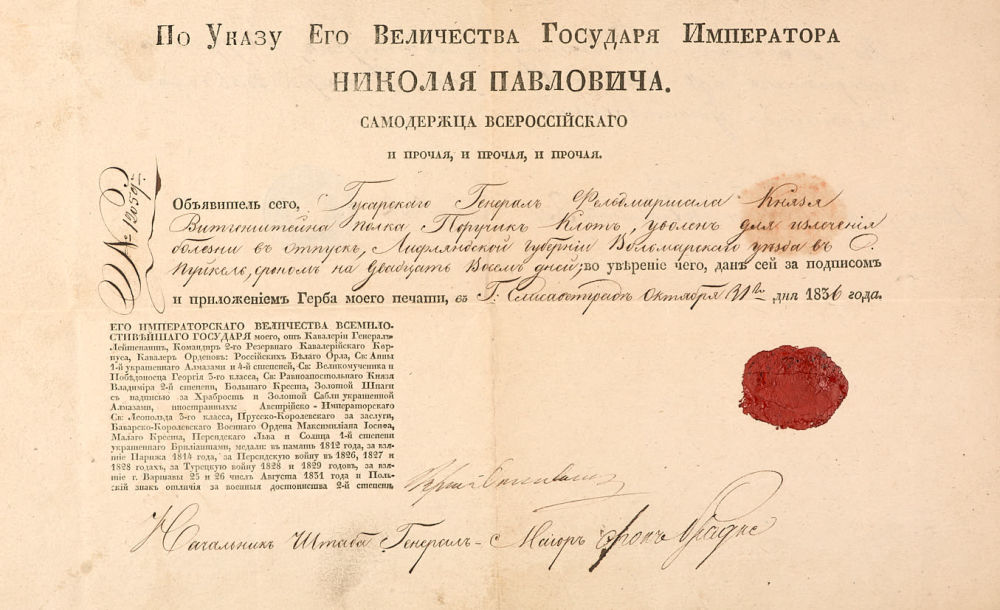 По Указу Его Величества Государя Императора
НИКОЛАЯ ПАВЛОВИЧА.
САМОДЕРЖЦА ВСЕРОССІЙСКАГО
И ПРОЧАЯ, И ПРОЧАЯ, И ПРОЧАЯ.
№ 12059
Объявитель сего, Гусарскаго Генералъ Фельдмаршала Князя
Витгенштейна полка, Поручикъ Клотъ, уволенъ для излеченія
болезни въ отпускъ, Лифляндской губерніи Волмарскаго уезда въ
Пуйкель, срокомъ на двадцать восемь дней; во увѣреніе чего, данъ сей за подписомъ
и приложеніемъ Герба моего печати, въ Г: Елисаветградѣ Октября 31 дня 1836 года.
ЕГО ИМПЕРАТОРСКАГО ВЕЛИЧЕСТВА ВСЕМИЛО-
СТИВѢЙШАГО ГОСУДАРЯ моего, отъ Кавалеріи Генералъ-
Лейтенантъ, Командиръ 2-го Резервнаго Кавалерійскаго Кор-
пуса, Кавалеръ Орденовъ: Россійскихъ Бѣлаго Орла, Св: Анны
1-й украшеннаго Алмазами и 4-й степеней, Св: Великомученика и
Побѣдоносца Георгія 3-го класса, Св: Равноапостольнаго Князя
Владиміра 2-й степени, Большаго Креста, Золотой Шпаги
съ надписью за Храбрость и Золотой Сабли украшенной
Алмазами, иностранныхъ: Австрійско-Императорскаго
Св: Леопольда 3-го класса, Прусско-Королевскаго за заслуги,
Баварско-Королевскаго Военнаго Ордена Максимиліана Іосифа,
Малаго Креста, Персидскаго Льва и Солнца 1-й степени
украшеннаго Брилліантами, медали: въ память 1812 года, за взя-
тіе Парижа 1814 года, за Персидскую войну въ 1826, 1827 и
1828 годахъ, за Турецкую войну 1828 и 1829 годовъ, за взя-
тіе г. Варшавы 25 и 26 числъ Августа 1831 года и Поль-
скій знакъ отличія за военныя достоинства 2-й степень
Начальникъ Штаба Генералъ-Маіоръ фонъ